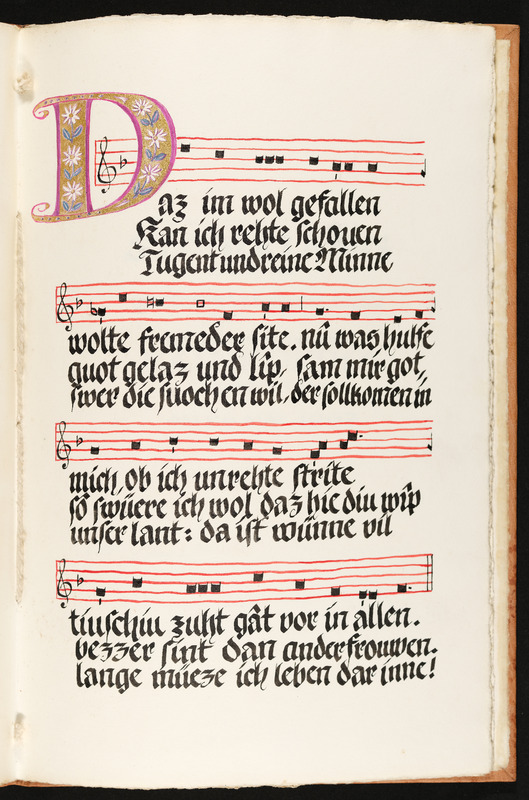 Daz im wol gefallen
Kan ich rehte schouen
Tugent und reine Minne
wolte fremeder site. nû was hulfe
guot gelaz und lîp. sam mir got,
swer die suochen wil, der soll komen in
mich, ob ich unrehte strîte
sô swüere ich wol daz hie diu wîp
unser lant: da ist wünne vil
tiuschiu zuht gât vor in allen.
bezzer sint dan ander frouwen.
lange müeze ich leben dar inne!